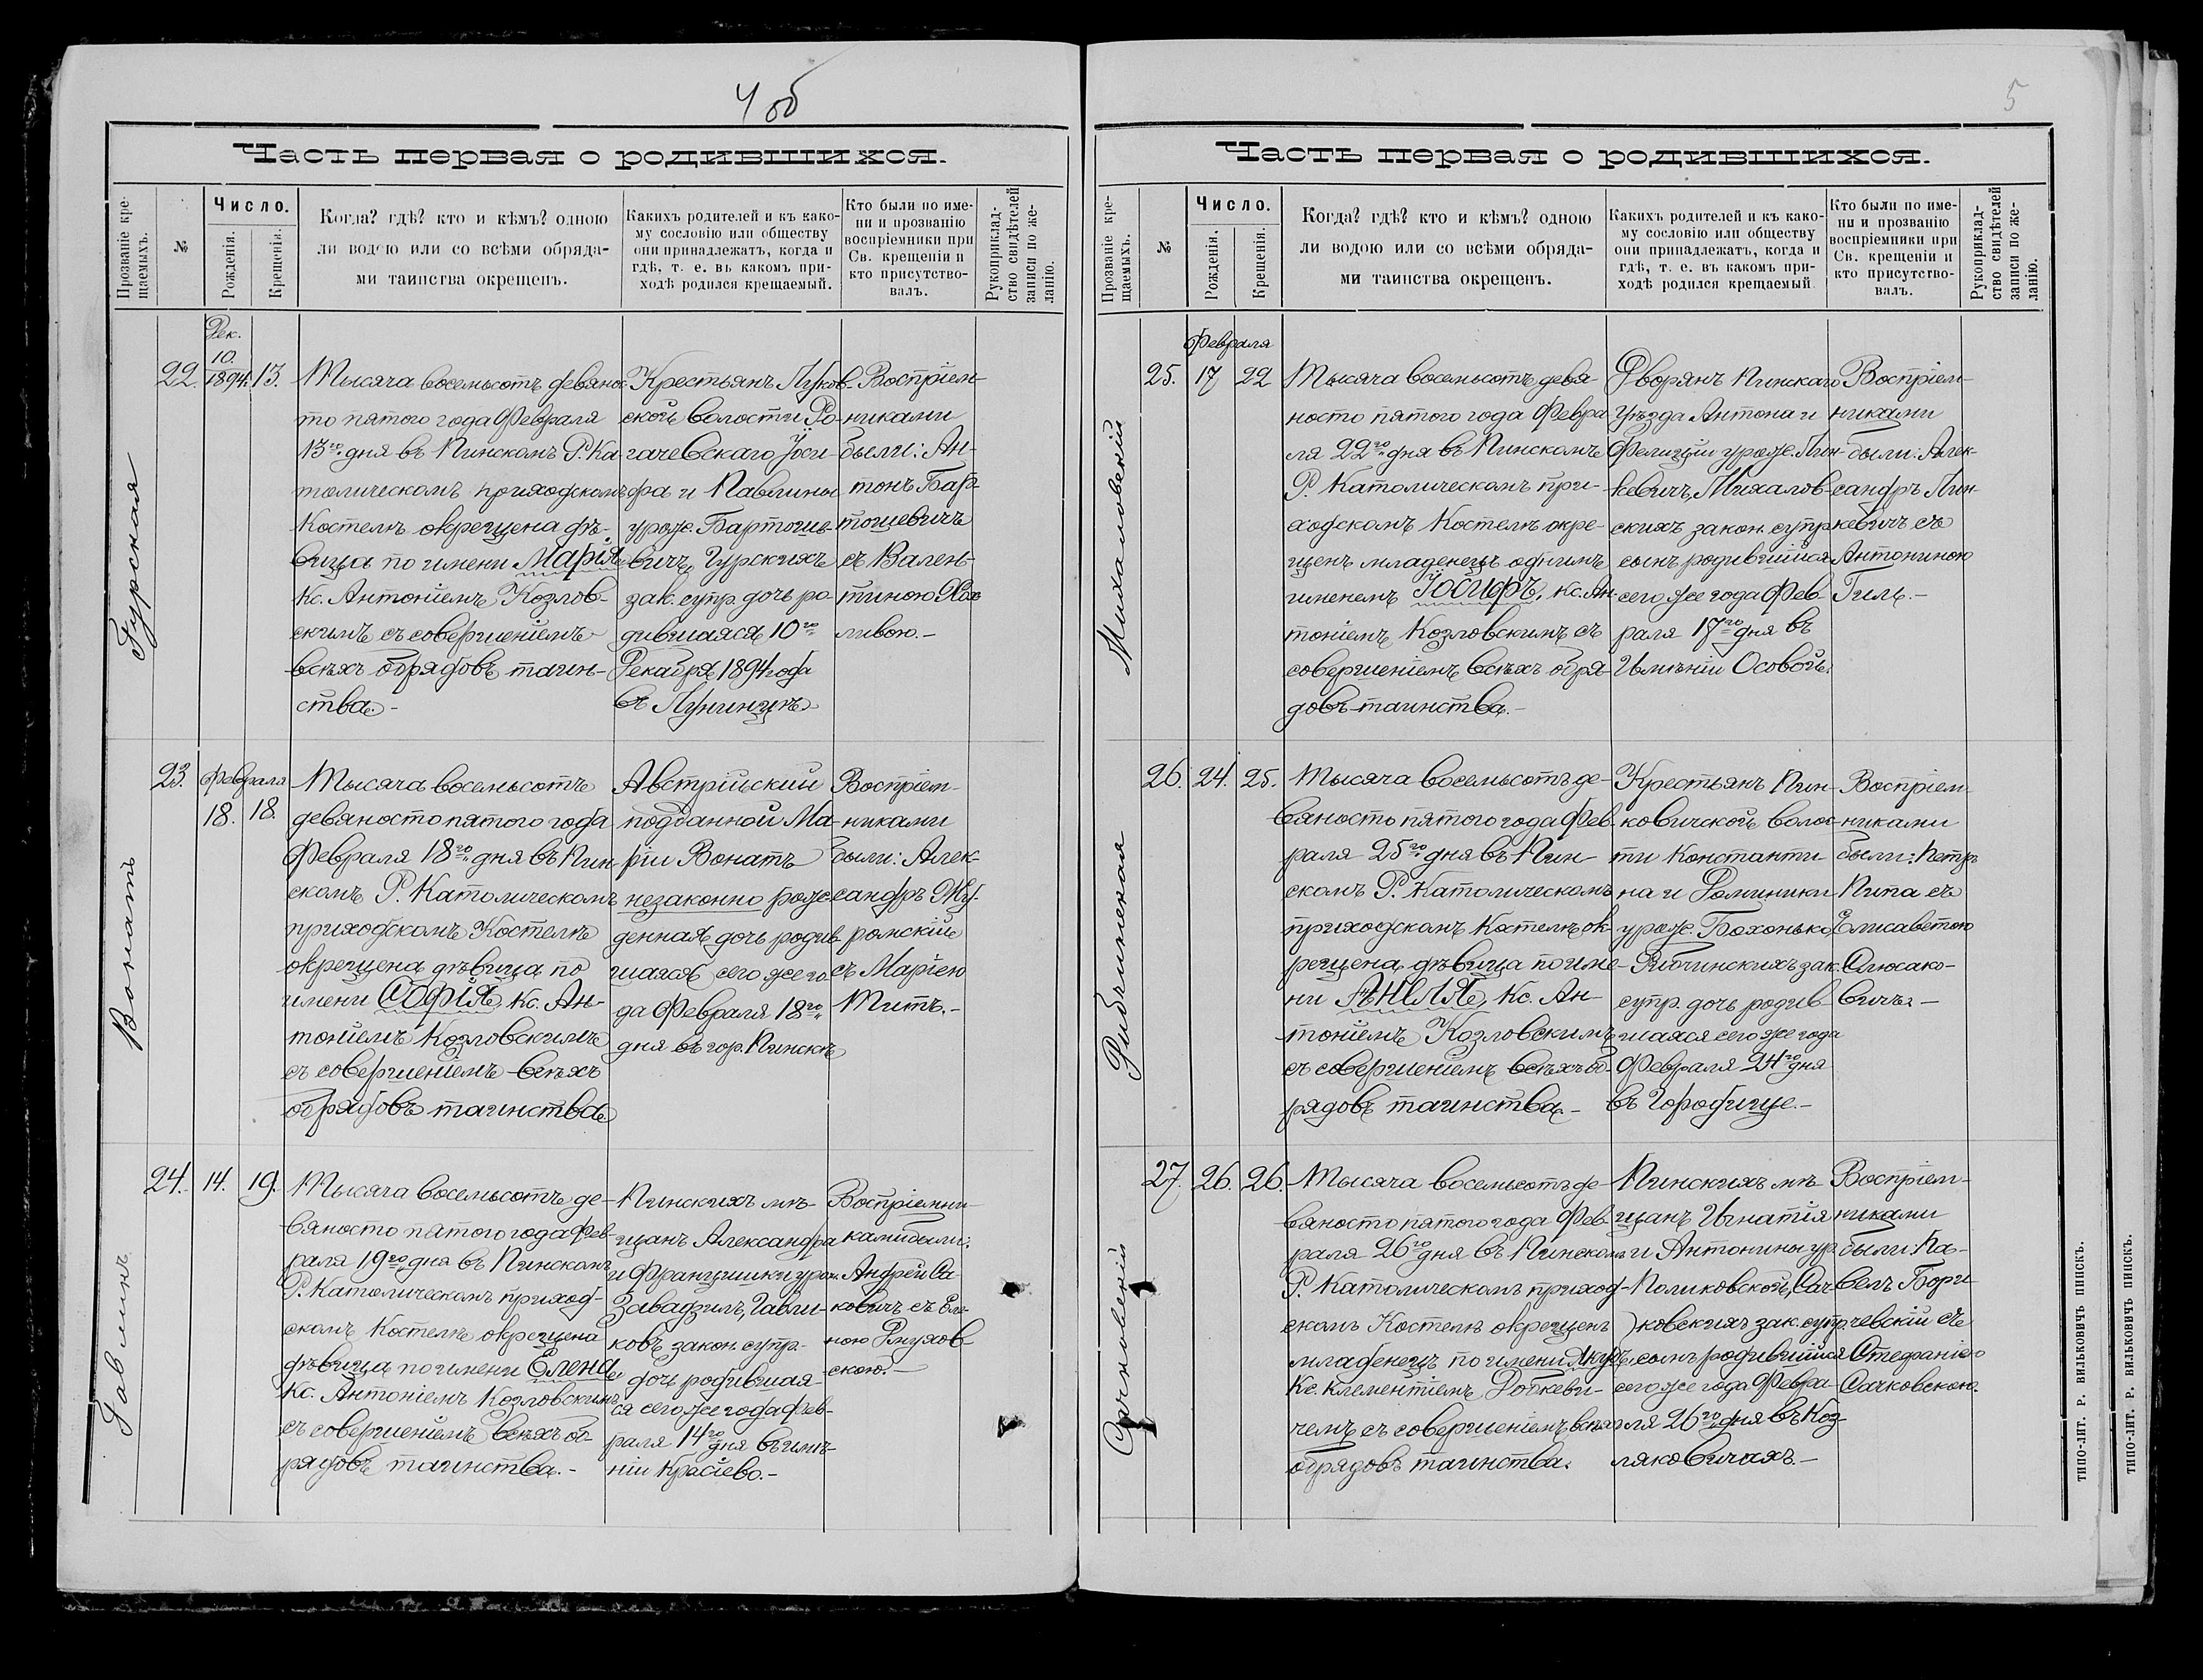 4 об
Часть первая о родившихся.
Прозваніе кре-
щаемыхъ.
№
Число.
Рожденія.
Крещенія.
Когда? гдѣ? кто и кѣмъ? одною
ли водою или со всѣми обряда-
ми таинства окрещенъ.
Какихъ родителей и къ како-
му сословію или обществу
они принадлежатъ, когда и
гдѣ, т. е. въ какомъ при-
ходѣ родился крещаемый.
Кто были по име-
ни и прозванію
воспріемники при
Св. крещеніи и
кто присутство-
валъ.
Рукоприклад-
ство свидѣтелей
записи по же-
ланію.
Гурская
22.
Дек.
10.
1894.
13.
Тысяча восемьсотъ девяно-
то пятого года Февраля
13го дня въ Пинскомъ Р. Ка-
толическомъ приходскомъ
Костелѣ окрещена дѣ-
вица по имени Марія
Кс. Антоніемъ Козлов-
скимъ съ совершеніемъ
всѣхъ обрядовъ таин-
ства.-
Крестьянъ Луков-
ской волости Ро-
гачевскаго Іоси-
фа и Павлины
урож. Бартоше-
вичъ, Гурскихъ
зак. супр. дочь ро-
дившаяся 10го
Декабря 1894 года
въ Лунинцѣ
Воспріем-
никами
были: Ан-
тонъ Бар-
тошевичъ
съ Вален-
тиною
ливою.-
Вонатъ
23.
Февраля
18.
18.
Тысяча восемьсотъ
девяносто пятого года
Февраля 18го дня въ Пин-
скомъ Р. Католическомъ
приходскомъ Костелѣ
окрещена дѣвица по
имени Софія, Кс. Ан-
тоніемъ Козловскимъ
съ совершеніемъ всѣхъ
обрядовъ таинства
Австрійский
подданной Ма-
ріи Вонатъ
незаконно рож-
денная дочь родив-
шаяся сего же го-
да Февраля 18го
дня въ гор. Пинскѣ
Воспріем-
никами
были: Алек-
сандръ Жу-
ромскій
съ Маріею
Титъ.-
Гавликъ
24.
14.
19.
Тысяча восемьсотъ де-
вяносто пятого года Фев-
раля 19го дня въ Пинскомъ
Р. Католическомъ приход-
скомъ Костелѣ окрещена
дѣвица по имени Елена
Кс. Антоніемъ Козловскимъ
съ совершеніемъ всѣхъ об-
рядовъ таинства.-
Пинскихъ мѣ-
щанъ Александра
и Францишки урож.
Завадзилъ, Гавли-
ковъ закон. супр.
дочь родившая-
ся сего же года Фев-
раля 14го дня въ имѣ-
ніи Красіево.-
Воспріемни-
ками были:
Андрей Са-
ковичъ съ Еле-
ною Глухов-
скою.-
5
Часть первая о родившихся.
Прозваніе кре-
щаемыхъ.
№
Число.
Рожденія.
Крещенія.
Когда? гдѣ? кто и кѣмъ? одною
ли водою или со всѣми обряда-
ми таинства окрещенъ.
Какихъ родителей и къ како-
му сословію или обществу
они принадлежатъ, когда и
гдѣ, т. е. въ какомъ при-
ходѣ родился крещаемый
Кто были по име-
ни и прозванію
воспріемники при
Св. крещеніи и
кто присутство-
валъ.
Рукоприклад-
ство свидѣтелей
записи по же-
ланію.
Михаловскій
25.
Февраля
17
22
Тысяча восемьсотъ девя-
носто пятого года Февра-
ля 22го дня въ Пинскомъ
Р. Католическомъ при-
ходскомъ Костелѣ окре-
щенъ младенецъ однимъ
именемъ Іосифъ, Кс. Ан-
тоніемъ Козловскимъ съ
совершеніемъ всѣхъ обря-
довъ таинства.-
Дворянъ Пинскаго
уѣзда Антона и
Фелиціи урож. Лин-
кевичъ, Михалов-
скихъ закон. супр.
сынъ родившійся
сего же года Фев-
раля 17го дня въ
Имѣніи Осовой.
Воспріем-
никами
были: Алек-
сандръ Лин-
кевичъ съ
Антониною
Гиль.-
Рибчинская
26.
24.
25.
Тысяча восемьсотъ де-
вяносто пятого года Фев-
раля 25го дня въ Пин-
скомъ Р. Католическомъ
приходскомъ Костелѣ ок-
рещена дѣвица по име-
ни Анеля, Кс. Ан-
тоніемъ Козловскимъ
съ совершеніемъ всѣхъ об-
рядовъ таинства.-
Крестьянъ Пин-
ковичской волос-
ти Константи-
на и Доминики
урож. Бохонько,
Рибчинскихъ зак.
супр. дочь родив-
шаяся сего же года
Февраля 24го дня
въ Городище.-
Воспріем-
никами
были: Петръ
Пипа съ
Елисаветою
Слюсако-
вичъ.-
Сачковскій
27.
26.
26.
Тысяча восемьсотъ де-
вяносто пятого года Фев-
раля 26го дня въ Пинскомъ
Р. Католическомъ приход-
скомъ Костелѣ окрещенъ
младенецъ по имени Якубъ,
Кс. Клементіемъ Добкеви-
чемъ съ совершеніемъ всѣхъ
обрядовъ таинства.
Пинскихъ мѣ-
щанъ Игнатія
и Антонины ур.
Поликовской, Сач-
ковскихъ зак. супр.
сынъ родившійся
сего же года Февра-
ля 26го дня въ Коз-
ляковичахъ.-
Воспріем-
никами
были: Па-
велъ Бори-
чевскій съ
Стефаніею
Сачковскою.
ТИПО-ЛИТ. Р. ВИЛЬКОВИЧЪ ПИНСКЪ.
ТИПО-ЛИТ. Р. ВИЛЬКОВИЧЪ ПИНСКЪ.